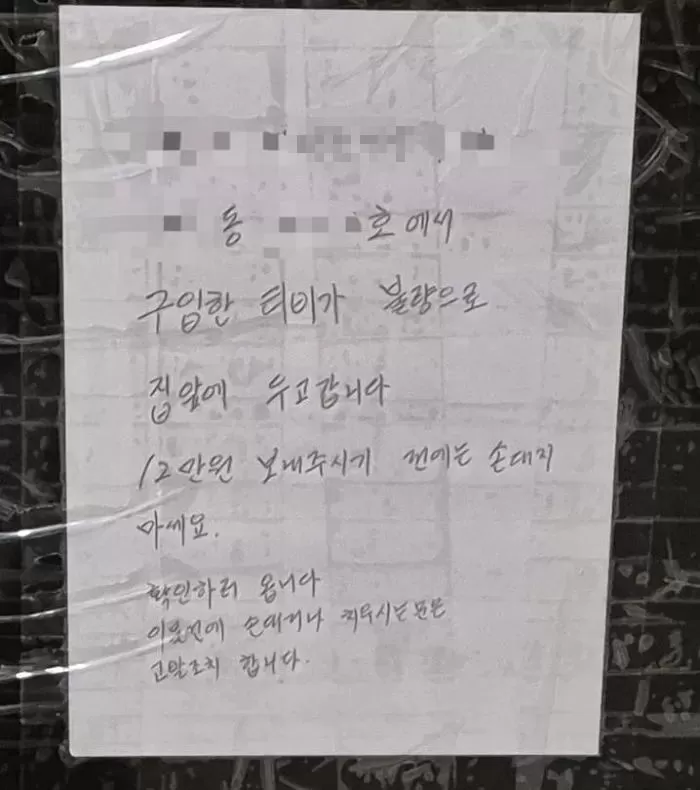 동 호에서
구입한 티비가 불량으로
집앞에 두고갑니다
12만원 보내주시기 전에는 손대지
마세요.
확인하러 옵니다
이을전에 손대거나 치우시는분은
고발조치 합니다.